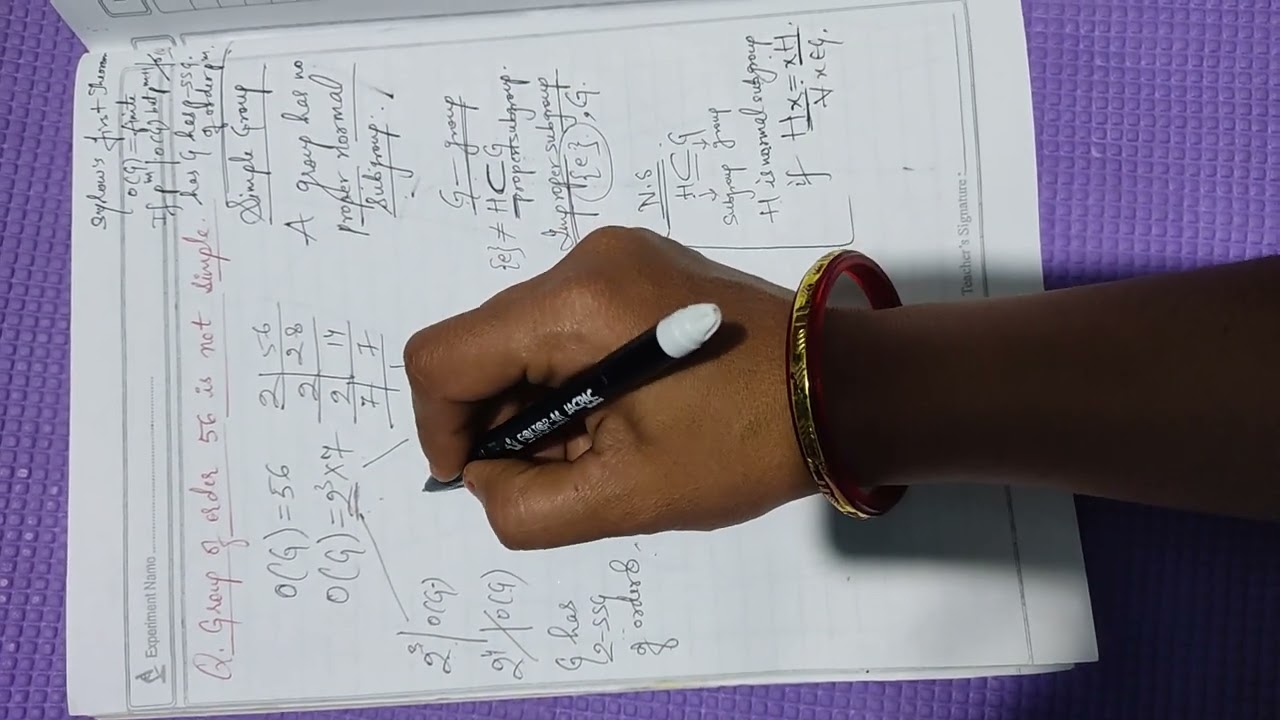 Sylow's first Theorem
O(G) = finite
If p^m | O(G) but p^m+1 ∤ O(G)
has G has p-SSG.
of order p^m.
Experiment Name
Q. Group of order 56 is not simple.
O(G) = 56
O(G) = 2^3 X 7
2 | 56
2 | 28
2 | 14
7 | 7
2^3 | O(G)
2^4 ∤ O(G)
G has
2-SSG
of order 8.
Simple Group
A group has no
proper normal
Subgroup.
G - group
{e} ≠ H ⊂ G
proper subgroup.
Improper subgroup
{e}, G.
N.S
H ⊂ G
↓ ↓
Subgroup group
H is normal subgroup
if Hx = xH
∀ x ∈ G.
Teacher's Signature :